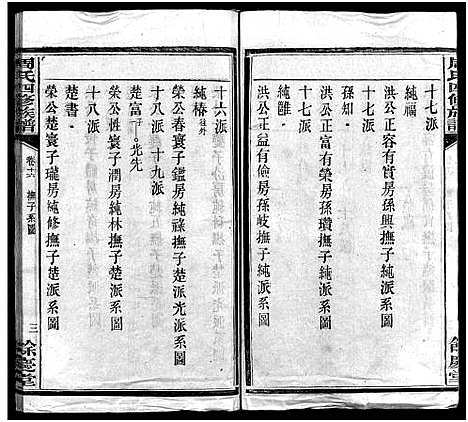 周氏四修族譜
十七派
純福
洪公正容有實房孫興撫子純派系圖
十七派
孫知
洪公正富有榮房孫瓚撫子純派系圖
十七派
純
洪公正益有儉房孫岐撫子純派系圖
餘慶堂
十六派
純椿往外
榮公春寰子鑑房純祿撫子楚派光派系圖
十八派 十九派
楚富 光先
榮公性寰子潤房純林撫子楚派系圖
十八派
楚書
榮公楚寰子瓏房純修撫子楚派系圖
周氏四修族譜
卷十六 撫子系圖
三
餘慶堂